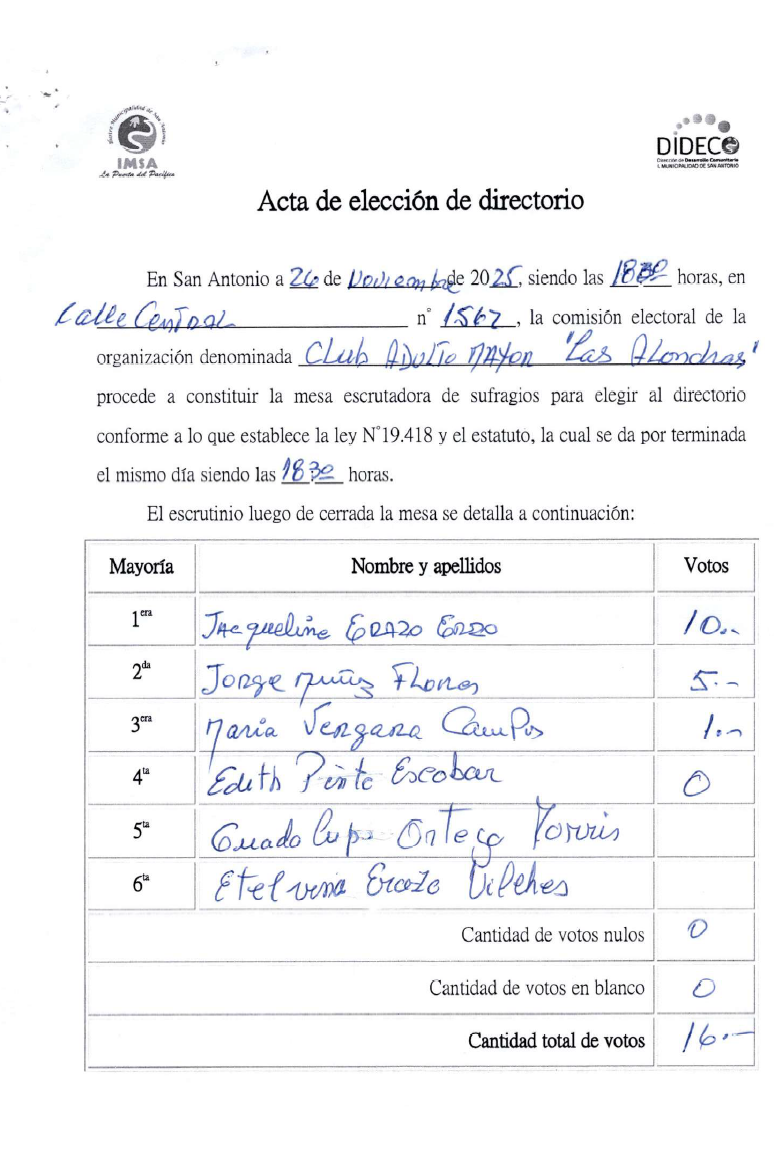 Ilustre Municipalidad de San Antonio
IMSA
La Puerta del Pacífico
DIDECO
Dirección de Desarrollo Comunitario
I. MUNICIPALIDAD DE SAN ANTONIO
Acta de elección de directorio
En San Antonio a 26 de Noviembre de 2025, siendo las 1830 horas, en
Calle Central n° 1567, la comisión electoral de la
organización denominada Club Adulto Mayor "Las Alondras"
procede a constituir la mesa escrutadora de sufragios para elegir al directorio
conforme a lo que establece la ley N°19.418 y el estatuto, la cual se da por terminada
el mismo día siendo las 1830 horas.
El escrutinio luego de cerrada la mesa se detalla a continuación:
Mayoría Nombre y apellidos Votos
1era Jacqueline Erazo Erazo 10.-
2da Jorge Muñoz Flores 5.-
3era María Vergara Campos 1.-
4ta Edith Pinto Escobar 0
5ta Guadalupe Ortega
6ta Etelvina Erazo Vilches
Cantidad de votos nulos 0
Cantidad de votos en blanco 0
Cantidad total de votos 16.-